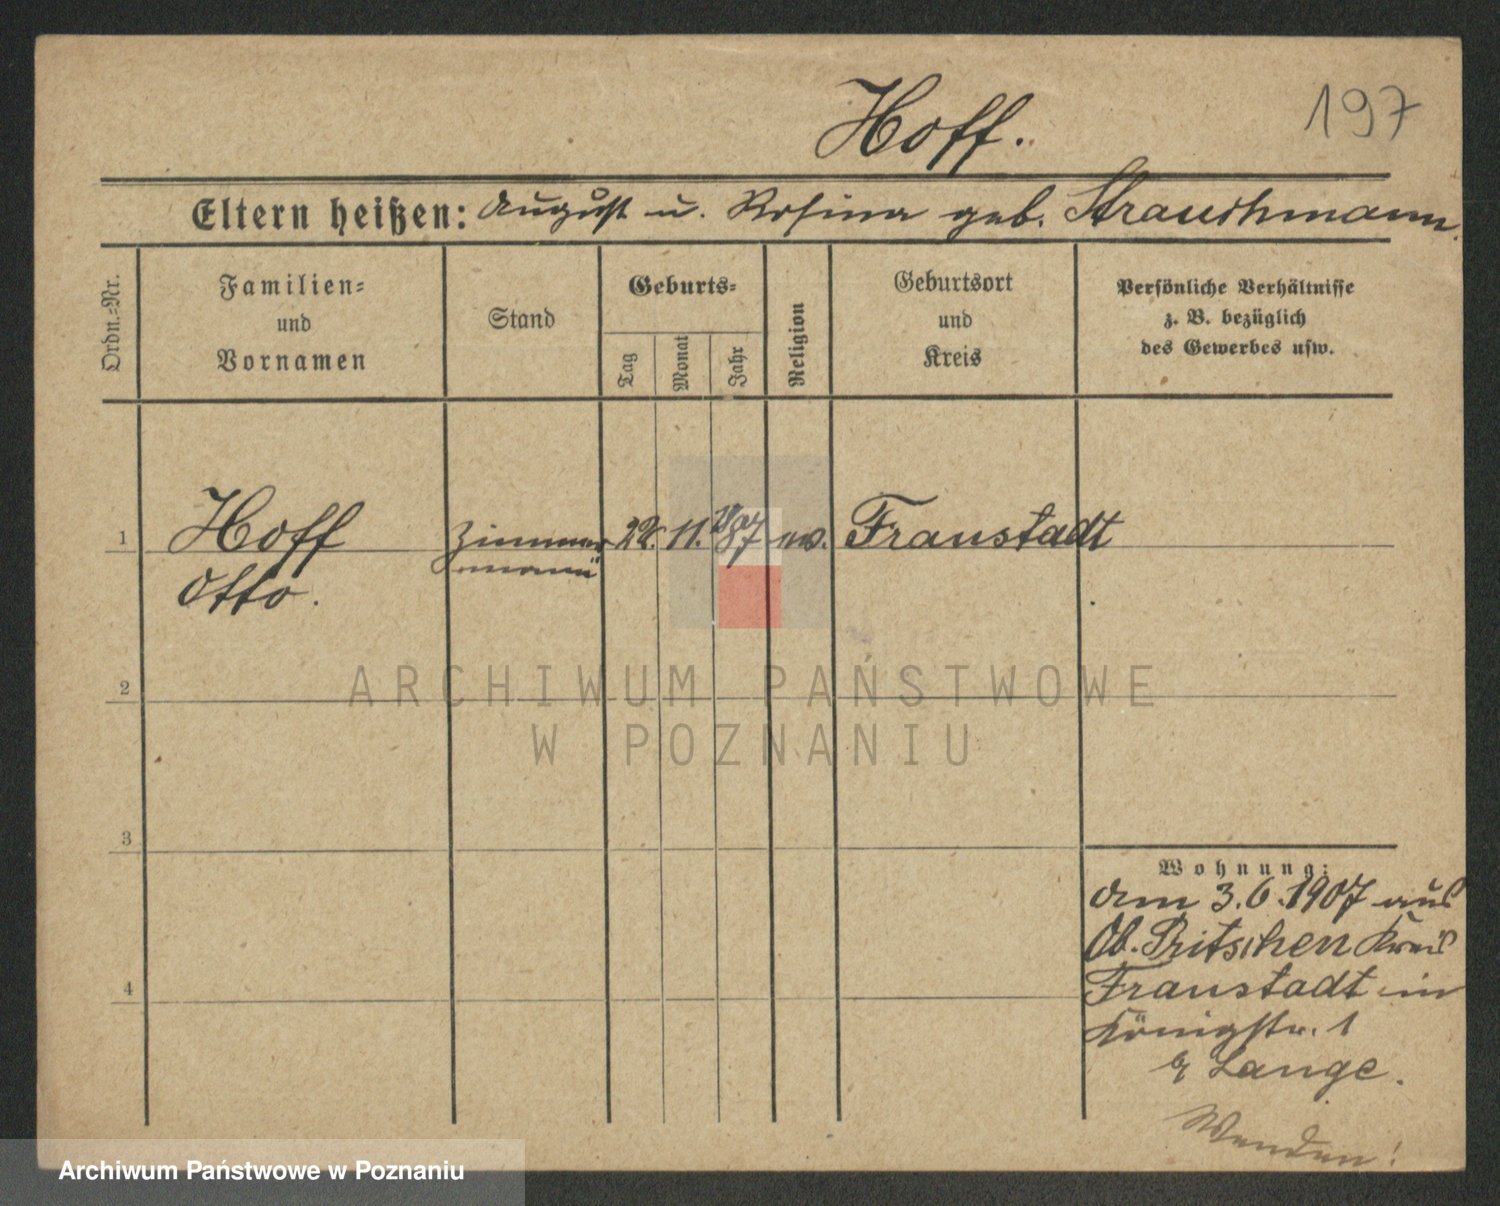 Hoff.
197
Eltern heißen: August u. Rosina geb. Strauchmann.
Ordn.-Nr.
Familien-
und
Vornamen
Stand
Geburts-
Tag
Monat
Jahr
Religion
Geburtsort
und
Kreis
Persönliche Verhältnisse
z. B. bezüglich
des Gewerbes usw.
1
Hoff
Otto.
Zimmer
mann
22. 11. 87 ev. Fraustadt
2
3
4
Wohnung:
Am 3.6.1907 aus
Ob. Pritschen Kreis
Fraustadt in
Königstr. 1
b/ Lange.
Wenden!
ARCHIWUM PAŃSTWOWE
W POZNANIU
Archiwum Państwowe w Poznaniu